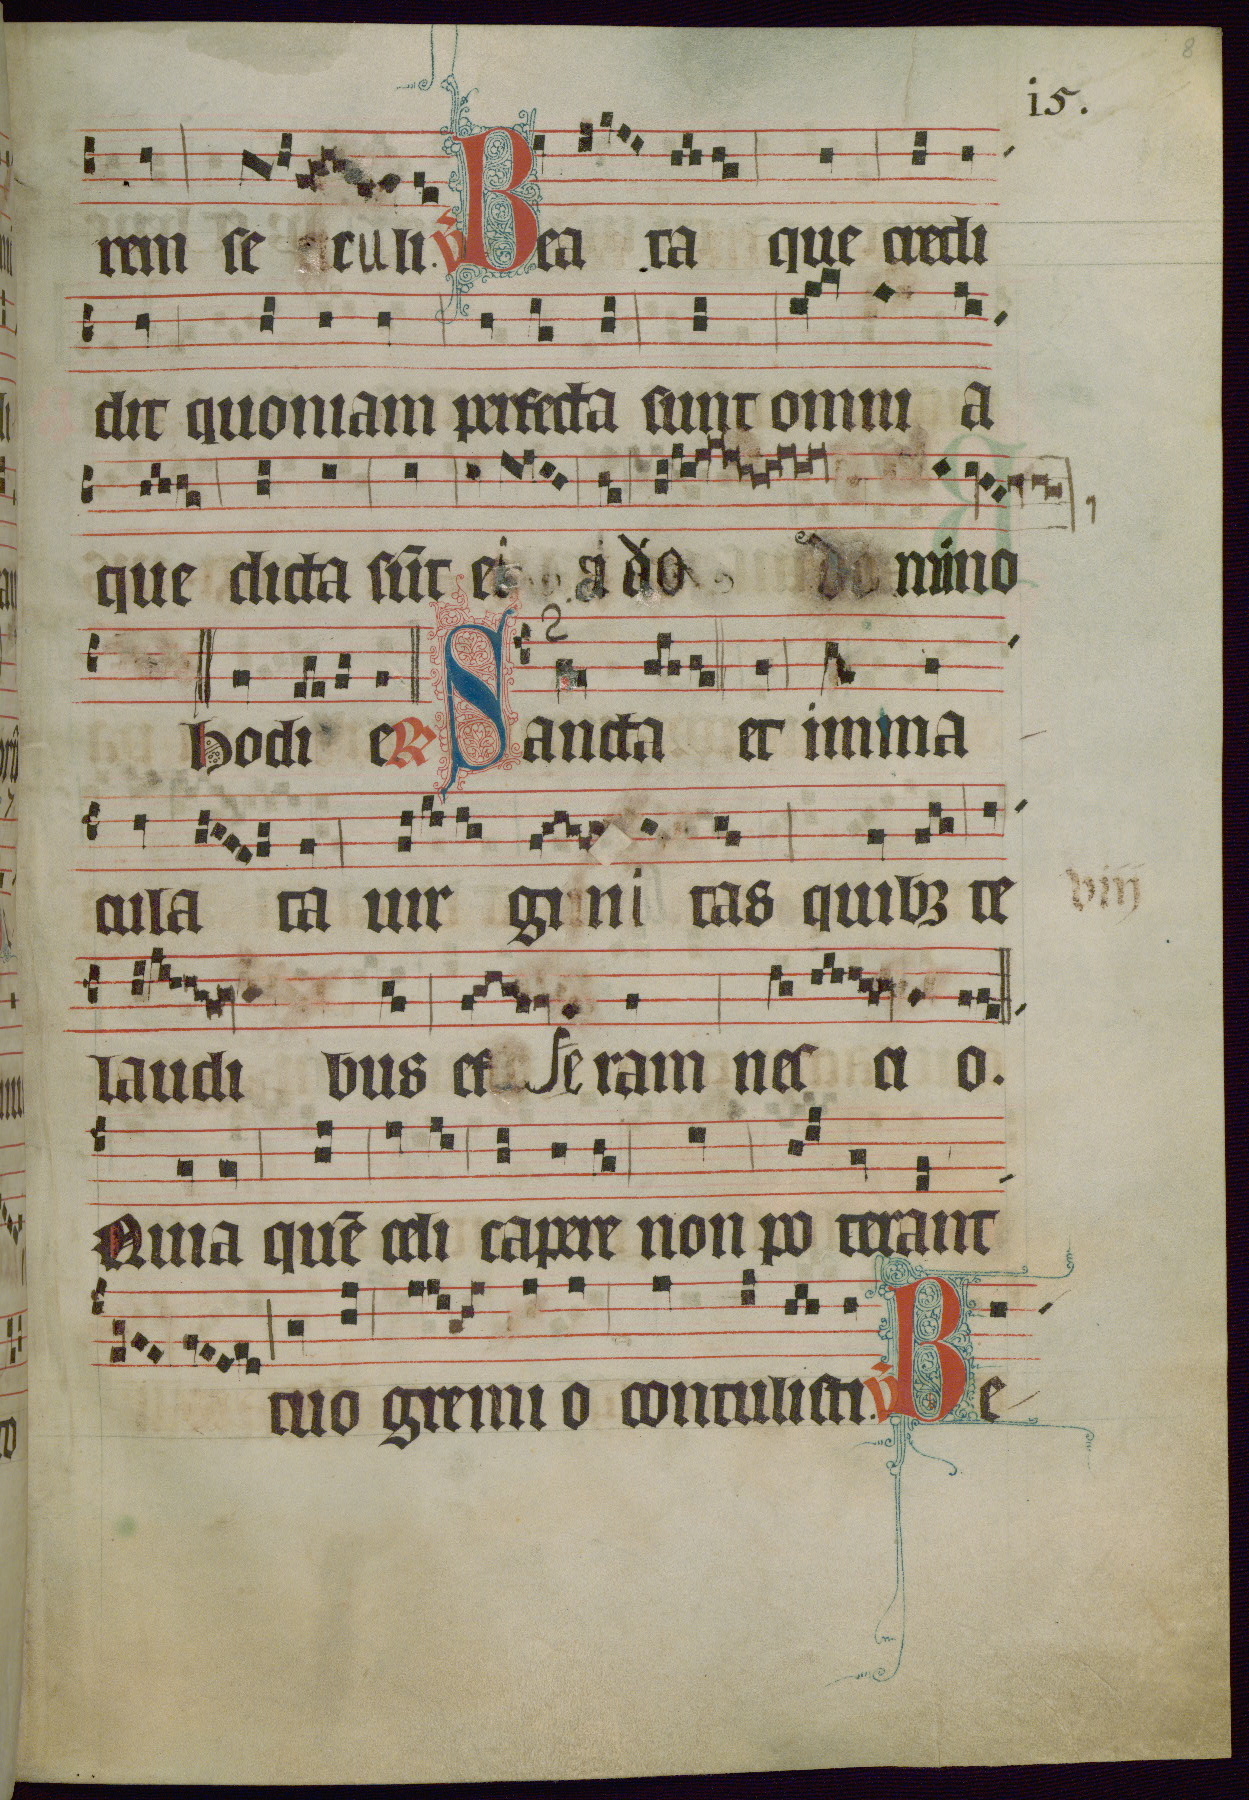 8
i5.
rem se culi. V Bea ta que credi
dit quoniam perfecta sunt omni a
que dicta sūt ei a do domino
hodi e R Sancta et imma
cula ta uir gi ni tas quibȝ te
viij
laudi bus ef fe ram nes ci o.
Quia quē celi capere non po terant
tuo gremi o contulisti. V Be